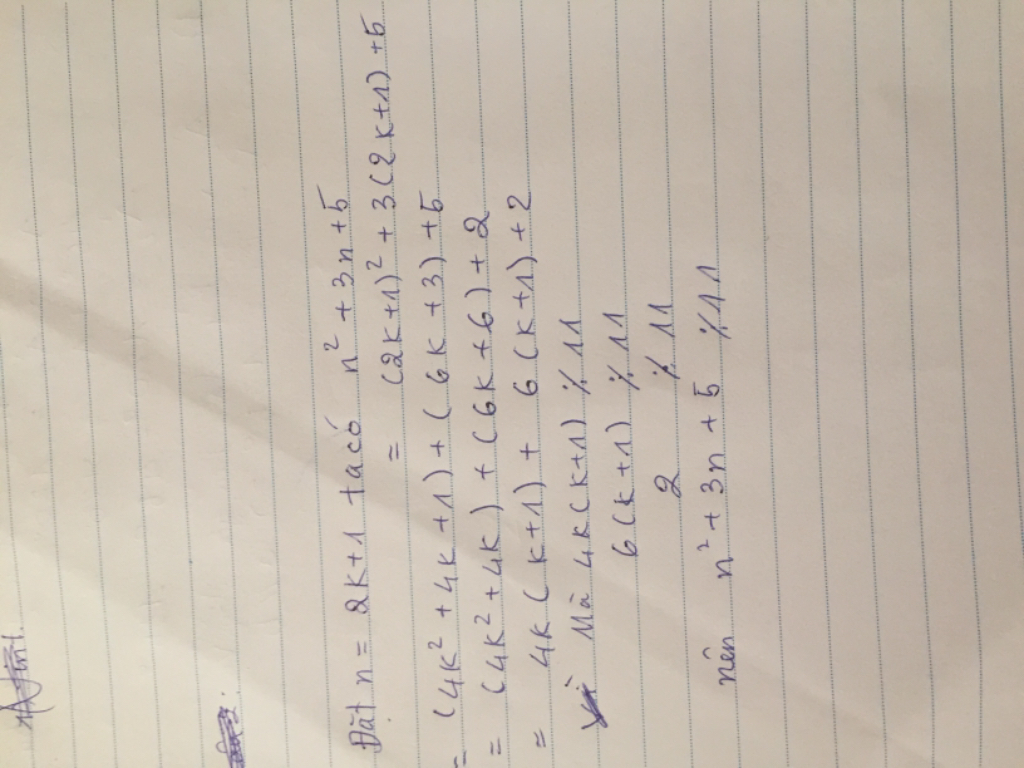 Đặt n = 2k+1 ta có n² + 3n + 5
= (2k+1)² + 3(2k+1) + 5
= (4k² + 4k + 1) + (6k + 3) + 5
= (4k² + 4k) + (6k + 6) + 2
= 4k(k+1) + 6(k+1) + 2
Mà 4k(k+1) ٪ 11
6(k+1) ٪ 11
2 ٪ 11
nên n² + 3n + 5 ٪ 11